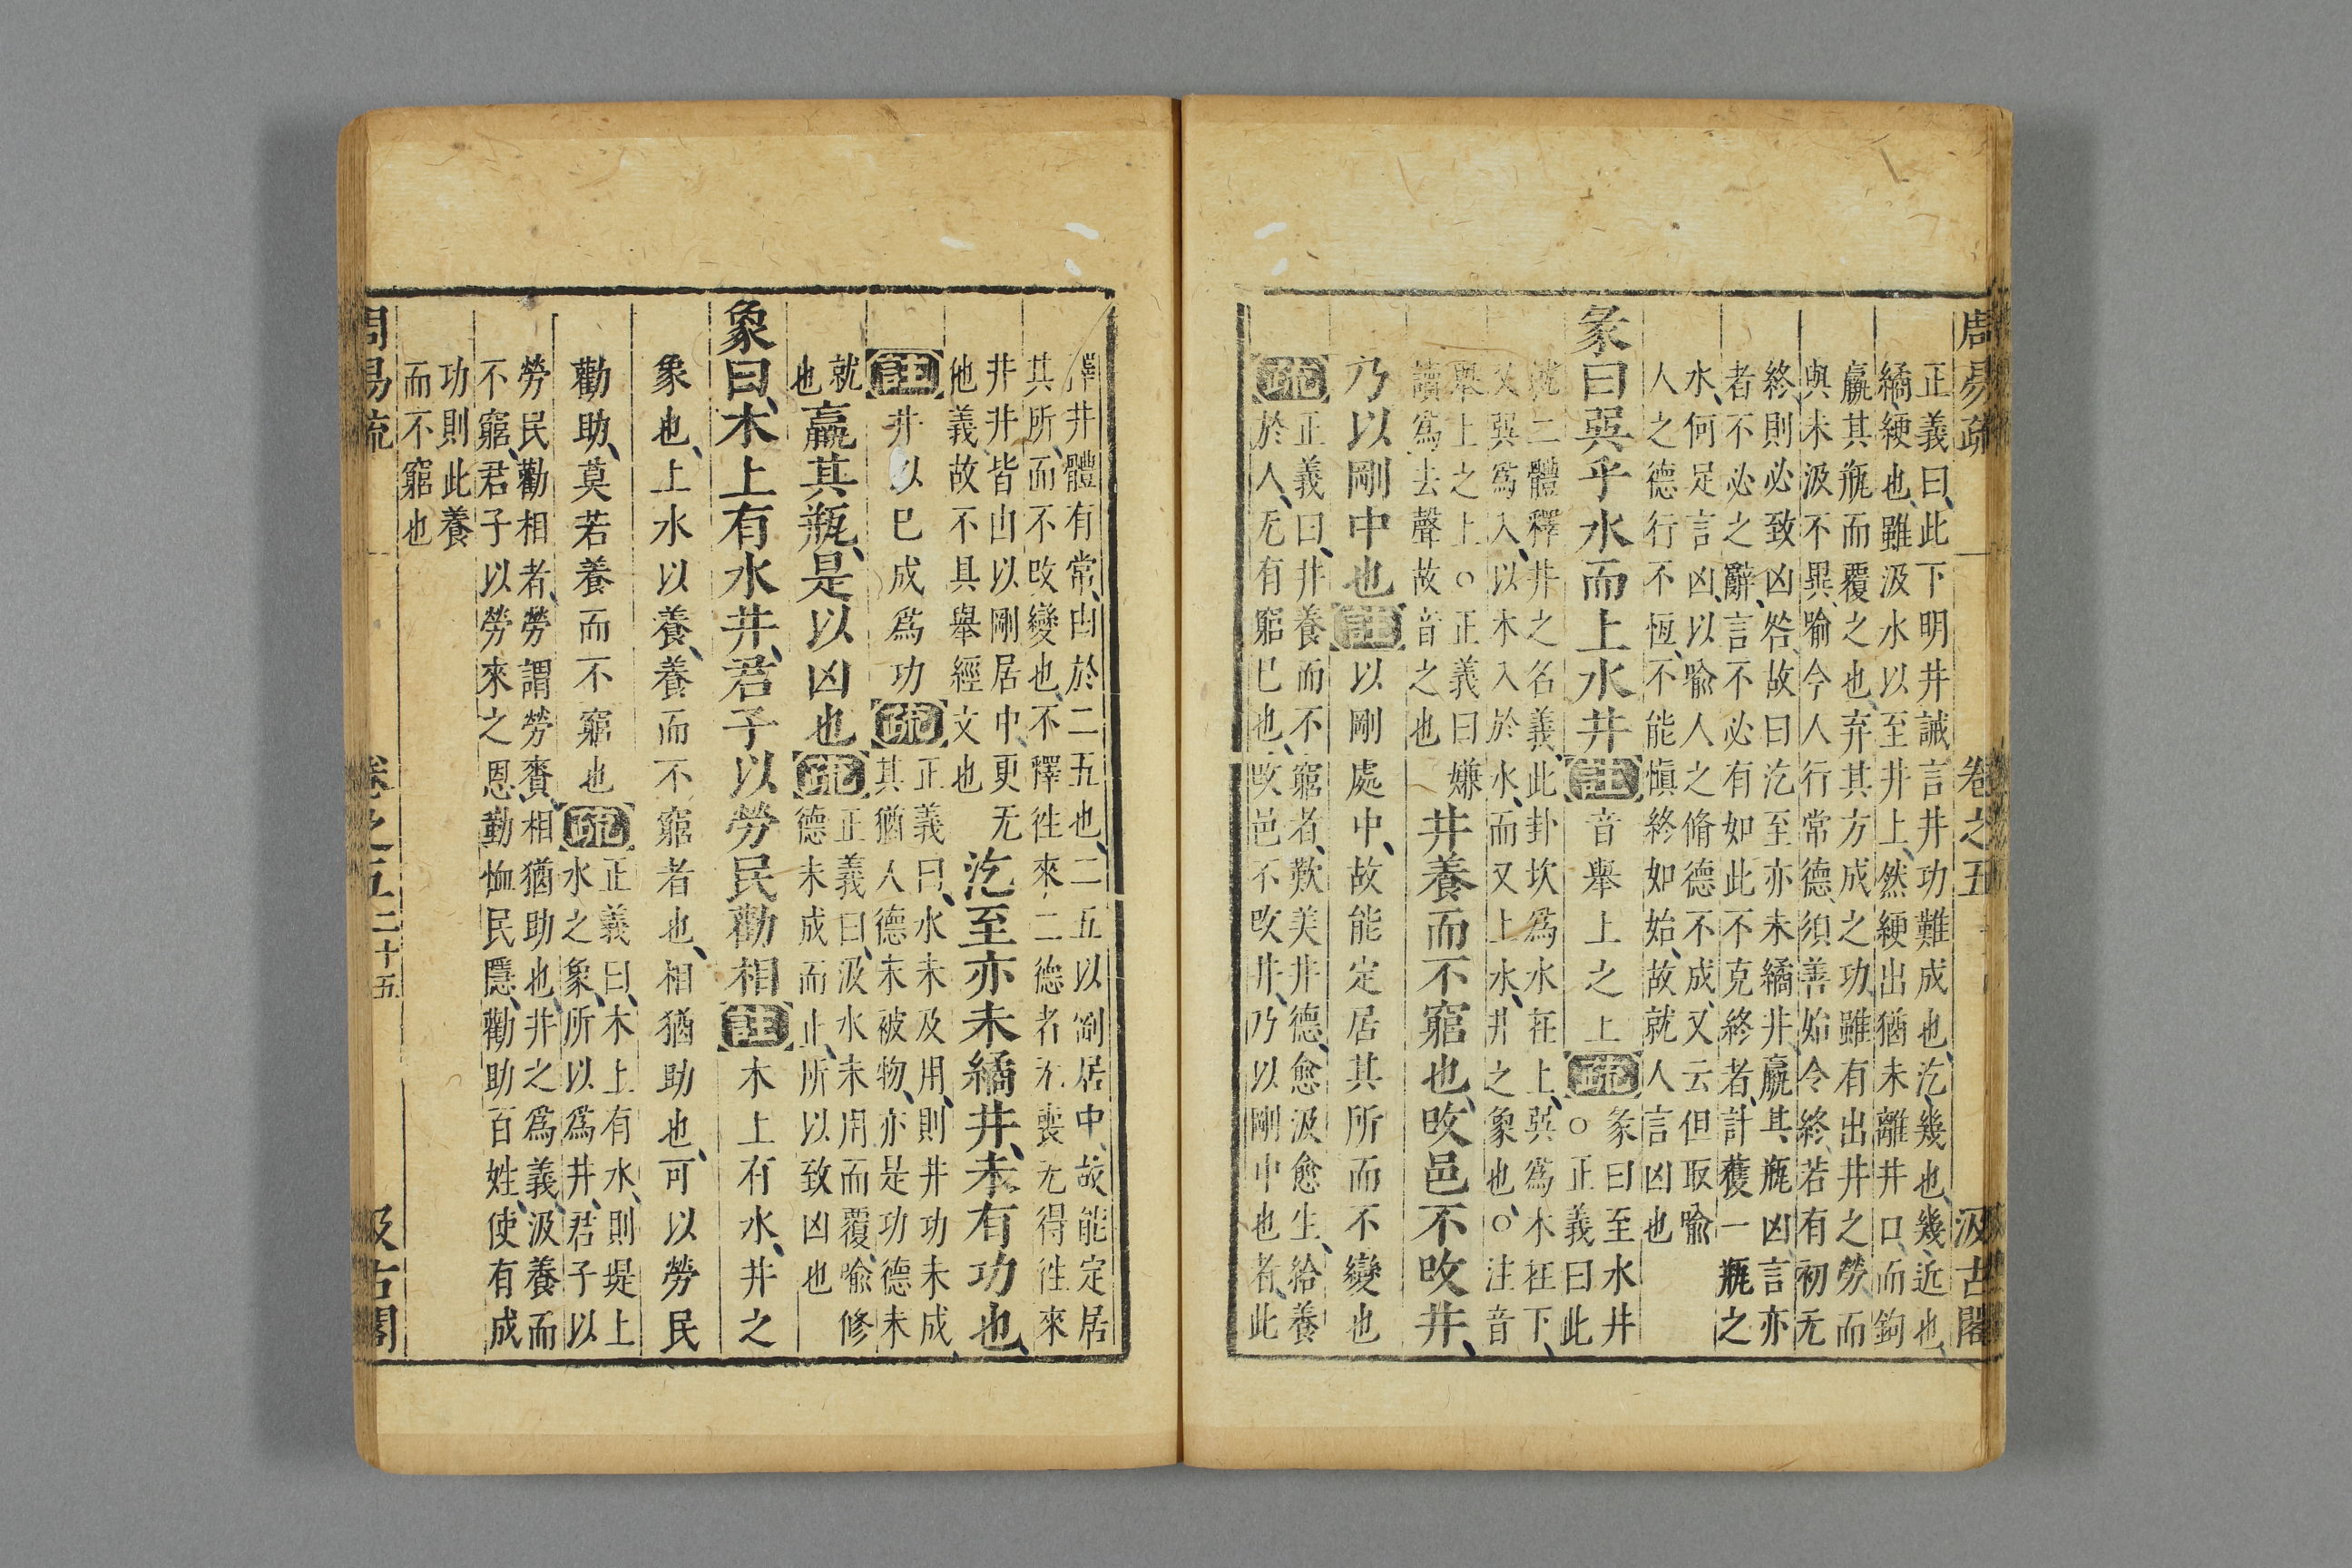 周易疏 卷之五 汲古閣
正義曰此下明井誡言井功難成也汔幾也幾近也
繘綆也雖汲水以至井上然綆出猶未離井口而鉤
羸其瓶而覆之也弃其方成之功雖有出井之勞而
與未汲不異喻今人行常德須善始令終若有初无
終則必致凶咎故曰汔至亦未繘井羸其瓶凶言亦
者不必之辭言不必有如此不克終者計獲一瓶之
水何足言凶以喻人之脩德不成又云但取喻
人之德行不恆不能愼終如始故就人言凶也
彖曰巽乎水而上水井
註
音舉上之上
疏
彖曰至水井
○正義曰此
就二體釋井之名義此卦坎爲水在上巽爲木在下
又巽爲入以木入於水而又上水井之象也○注音
舉上之上○正義曰嫌
讀爲去聲故音之也
井養而不窮也攺邑不攺井
乃以剛中也
註
以剛處中故能定居其所而不變也
疏
正義曰井養而不窮者歎美井德愈汲愈生給養
於人无有窮巳也攺邑不攺井乃以剛中也者此
釋井體有常由於二五也二五以剛居中故能定居
其所而不攺變也不釋徃來二德者无喪无得徃來
井井皆由以剛居中更无
他義故不具舉經文也
汔至亦未繘井未有功也
註
井以巳成爲功
疏
正義曰水未及用則井功未成
其猶人德未被物亦是功德未
就
也
羸其瓶是以凶也
疏
正義曰汲水未用而覆喻修
德未成而止所以致凶也
象曰木上有水井君子以勞民勸相
註
木上有水井之
象也上水以養養而不窮者也相猶助也可以勞民
勸助莫若養而不窮也
疏
正義曰木上有水則是上
水之象所以爲井君子以
勞民勸相者勞謂勞賚相猶助也井之爲義汲養而
不窮君子以勞來之恩勤恤民隱勸助百姓使有成
功則此養
而不窮也
周易疏 卷之五 二十五 汲古閣